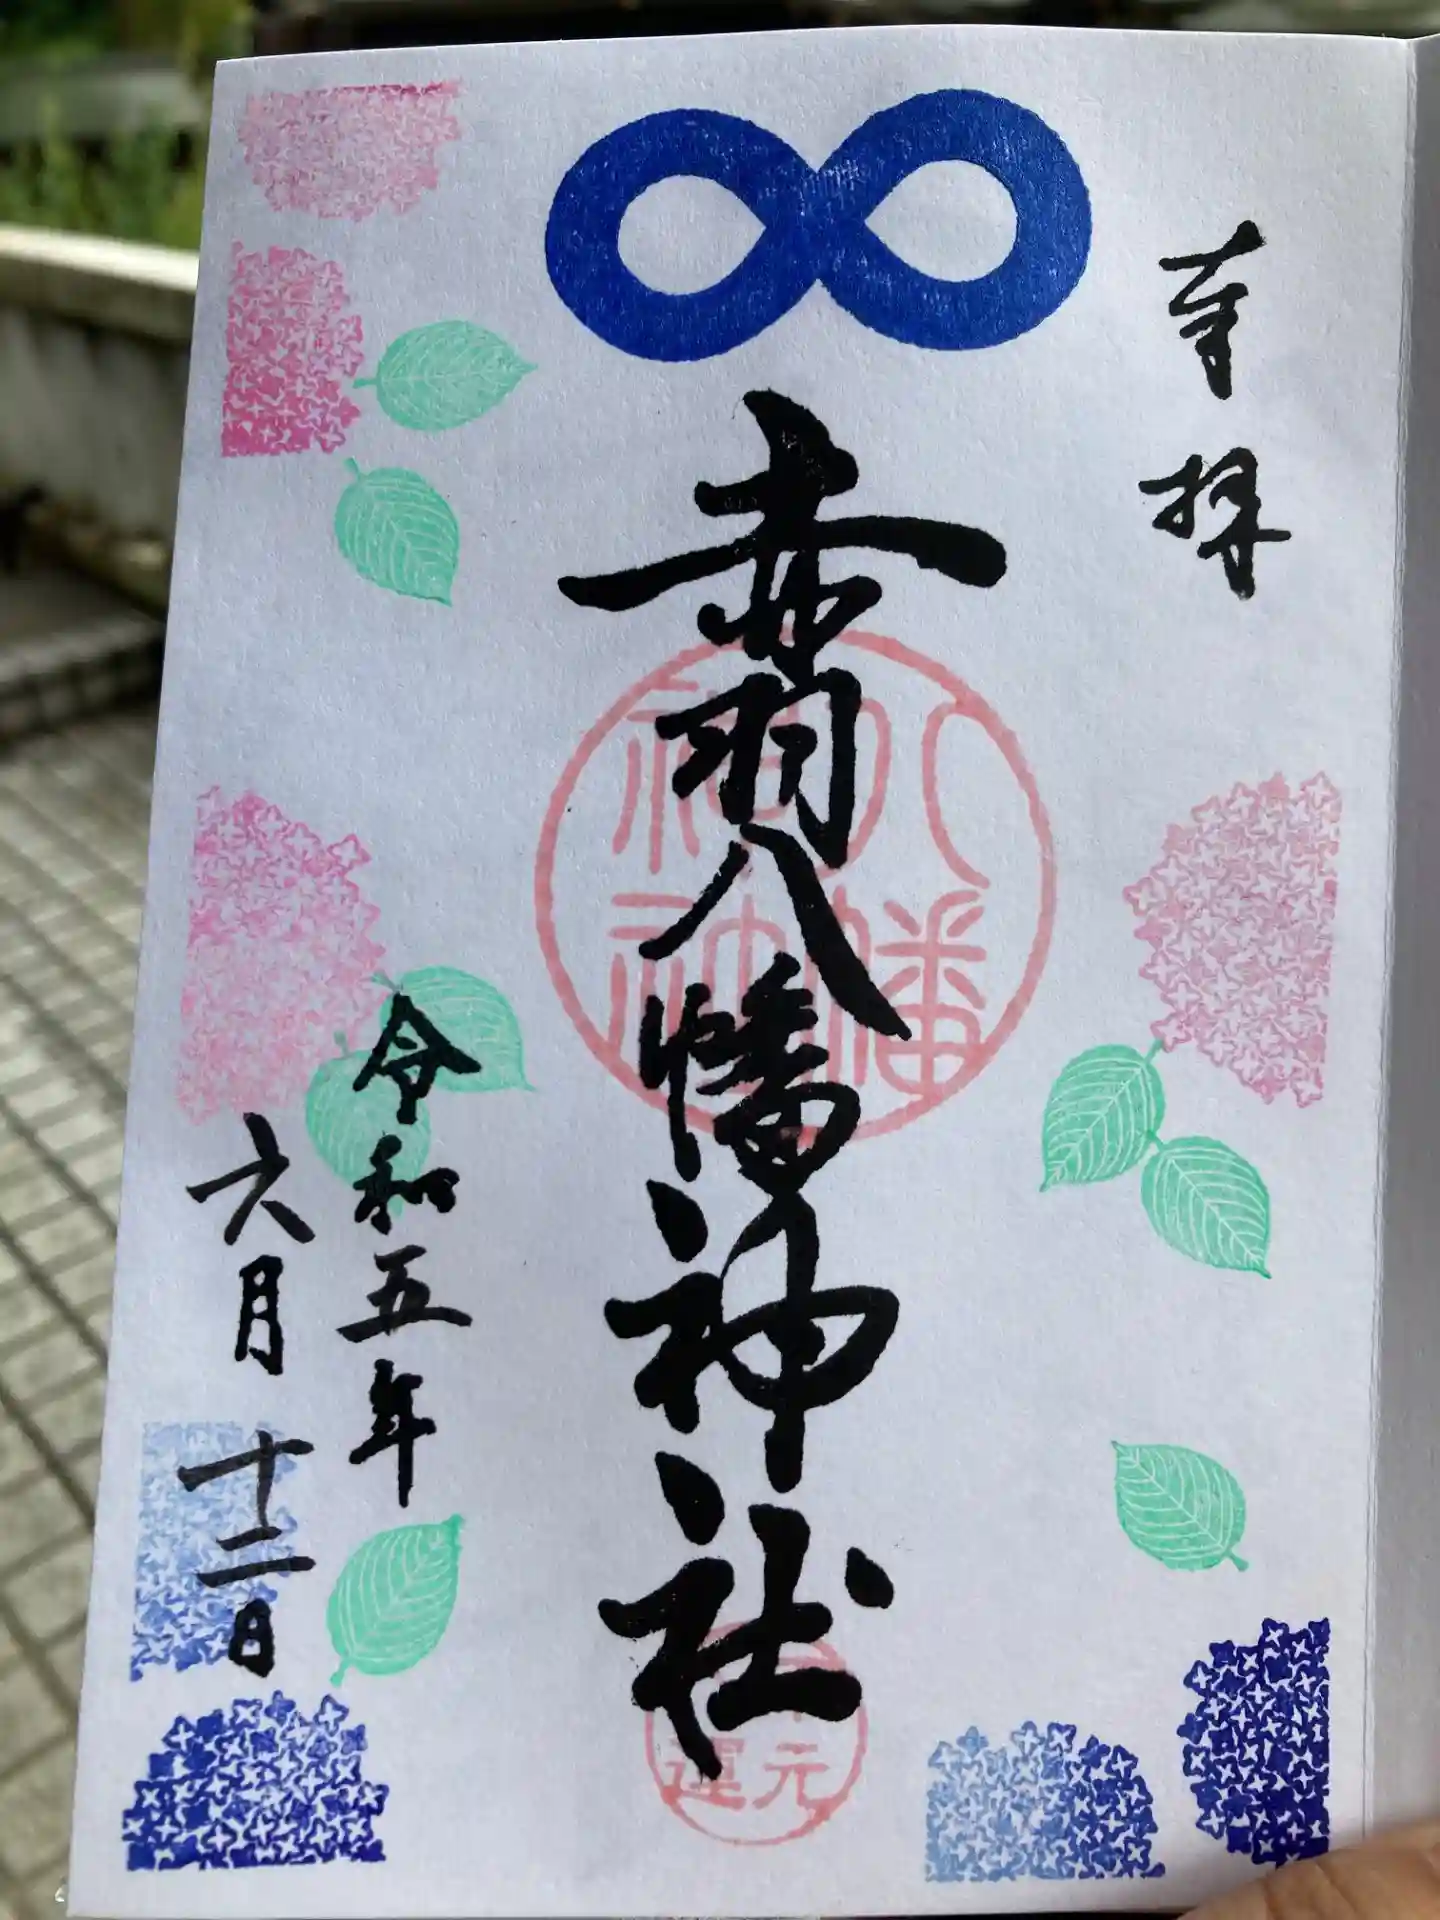 奉拝
赤羽八幡神社
八幡
神社
元
運
令和五年
六月十二日